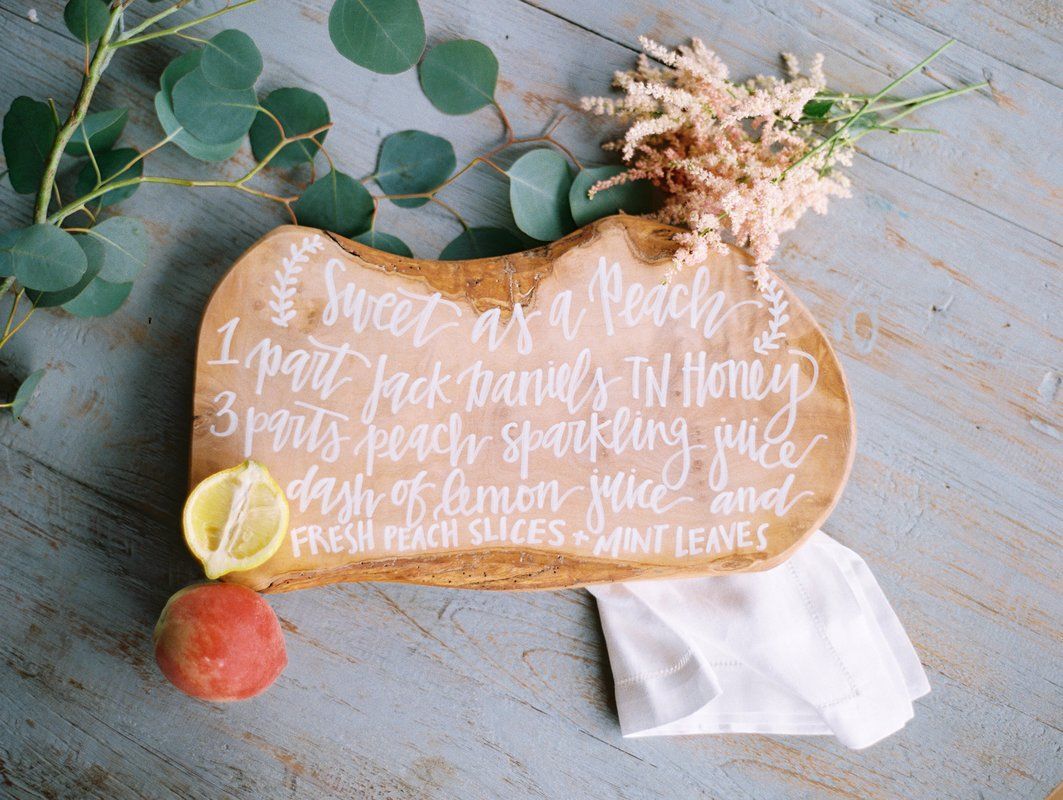 Sweet as a Peach
1 part Jack Daniels TN Honey
3 parts peach sparkling juice
dash of lemon juice and
FRESH PEACH SLICES + MINT LEAVES